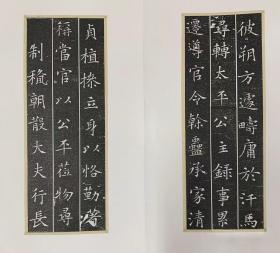 彼朔方遽疇庸於汗馬
尋轉太平公主錄事累
遷遵官令幹蠱承家清
貞植操立身以恪勤著
稱當官以公平莅物尋
制稱朝散大夫行長